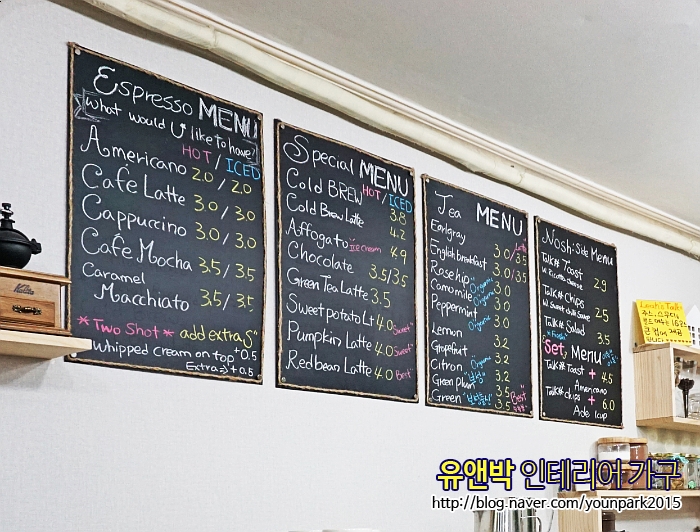 Espresso MENU
What would U like to have?
HOT / ICED
Americano 2.0 / 2.0
Cafe Latte 3.0 / 3.0
Cappuccino 3.0 / 3.0
Cafe Mocha 3.5 / 3.5
Caramel
Macchiato 3.5 / 3.5
*Two Shot* add extra
whipped cream on top +0.5
Extra => +0.5
Special MENU
HOT / ICED
Cold BREW 3.8
Cold Brew Latte 4.2
Affogato ice cream 4.9
Chocolate 3.5/3.5
Green Tea Latte 3.5
Sweet potato Lt 4.0 "Sweet"
Pumpkin Latte 4.0 "Sweet"
Red bean Latte 4.0 "Best"
Tea MENU
Earlgray 3.0/3.5
English breakfast 3.0/3.5
Rosehip Organic 3.0
Camomile Organic 3.0
Peppermint 3.0
Lemon 3.2
Grapefruit
Citron Organic 3.2
Green plum 3.2
Green 3.5 "Best"
Nosh: Side Menu
Talk# Toast 2.9
W. Ricotta cheese
Talk# Chips 2.5
W. Sweet chili sauce
Talk# Salad 3.5
"Fresh"
Set, Menu
Talk# Toast + 4.5
Americano
Talk# chips + 6.0
Ade 1cup
유앤박 인테리어 가구
http://blog.naver.com/younpark2015